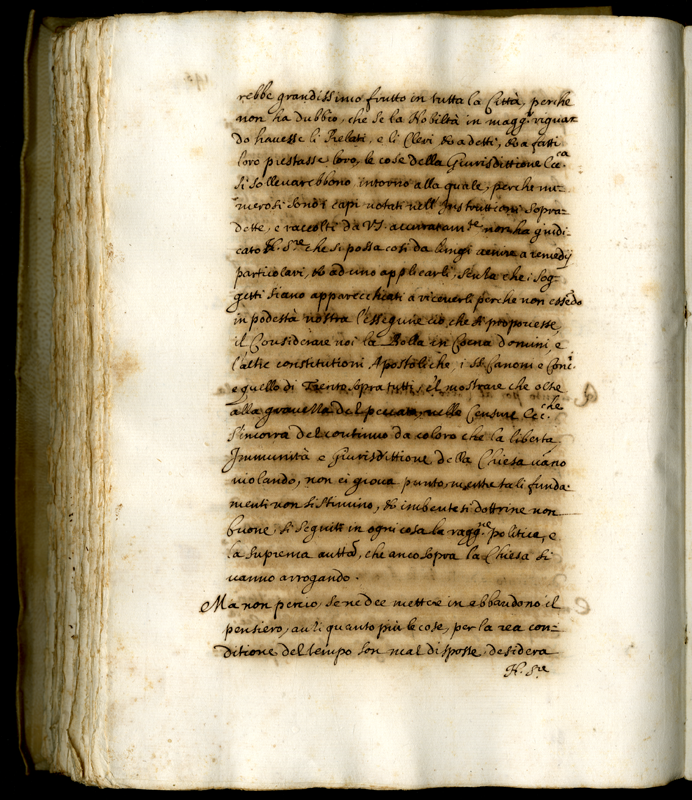 rebbe grandissimo frutto in tutta la Città, perche
non ha dubbio, che se la Nobiltà in magg.r riguar
do havesse li Prelati, e li Clerici, ò a detti, ò a fatti
loro prestasse loro, le cose della Giurisdittione Ecc.ca
si sollevarebbono intorno alla quale, perche nu-
merosi sono i capi notati nell' Instruttioni sopra-
dette, e raccolti da V.S. accuratam.te non ha giudi-
cato N. S.re che si possa così da lungi venire a remedij
particolari, ò ad uno applicarli, senza che i sog-
getti siano apparecchiati a riceverli perche non essẽdo
in podestà nostra l'esseguire ciò, che si proponesse,
il Considerare noi la Bolla in Coena Domini, e
l'altre constitutioni Apostoliche, i S.i Canoni e Conc.i
e quello di Trento sopra tutti, e'l mostrare che oltre
alla gravezza del peccato, nelle Censure Ecc.che
s'incorra del continuo da coloro che la libertà
Immunità e Giurisdittione della Chiesa vano
violando, non ci giova punto, mentre tali funda-
menti non si stimino, ò imbevutesi dottrine non
buone, si seguiti in ogni cosa la ragg.ne politica, e
la suprema autt.tà, che anco sopra la Chiesa si
vanno arrogando.
Ma non perciò se ne dee mettere in abbandono il
pensiero, anzi quanto più le cose, per la rea con-
ditione del tempo son mal disposte, desidera
N. S.re